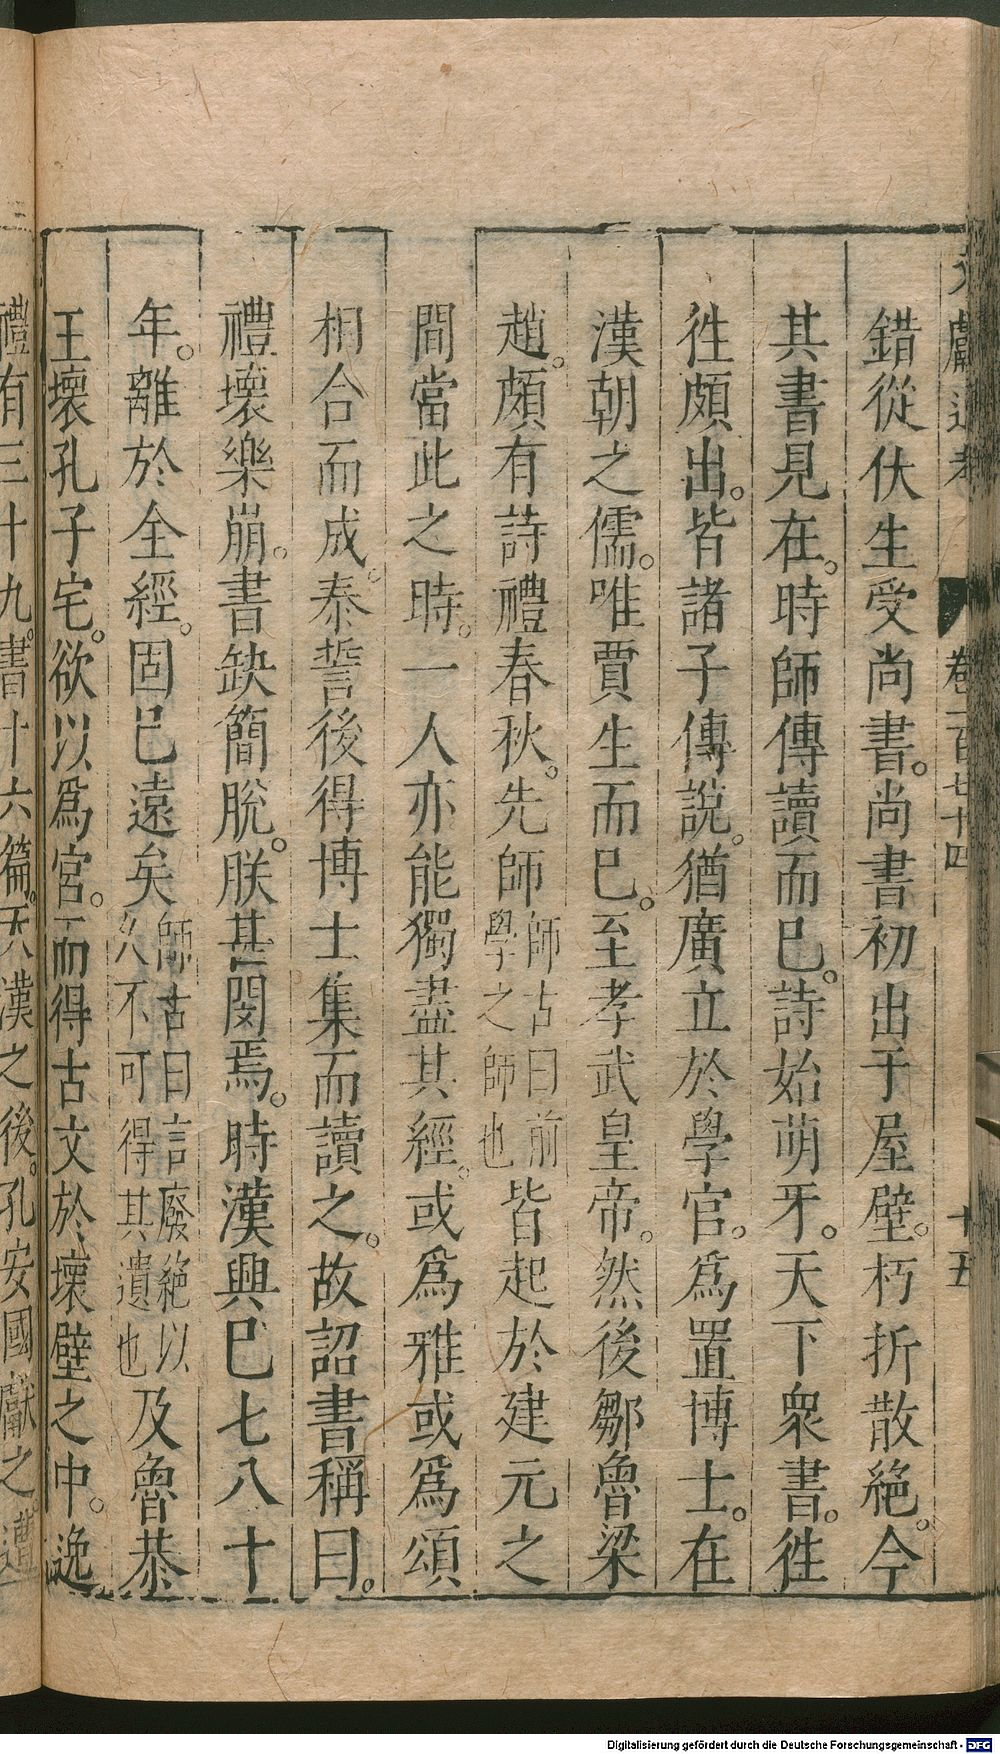 文獻通考 卷一百七十四 十五
錯從伏生受尚書。尚書初出于屋壁。朽折散絕。今
其書見在。時師傳讀而已。詩始萌牙。天下衆書。徃
徃頗出。皆諸子傳說。猶廣立於學官。爲置博士。在
漢朝之儒。唯賈生而已。至孝武皇帝。然後鄒魯梁
趙。頗有詩禮春秋。先師師古曰前學之師也皆起於建元之
間當此之時。一人亦能獨盡其經。或爲雅或爲頌
相合而成。泰誓後得博士集而讀之。故詔書稱曰。
禮壞樂崩。書缺簡脫。朕甚閔焉。時漢興已七八十
年。離於全經。固已遠矣師古曰言廢絕以久不可得其遺也及魯恭
王壞孔子宅。欲以爲宮。而得古文於壞壁之中。逸
禮有三十九。書十六篇。天漢之後。孔安國獻之。遭
Digitalisierung gefördert durch die Deutsche Forschungsgemeinschaft - DFG